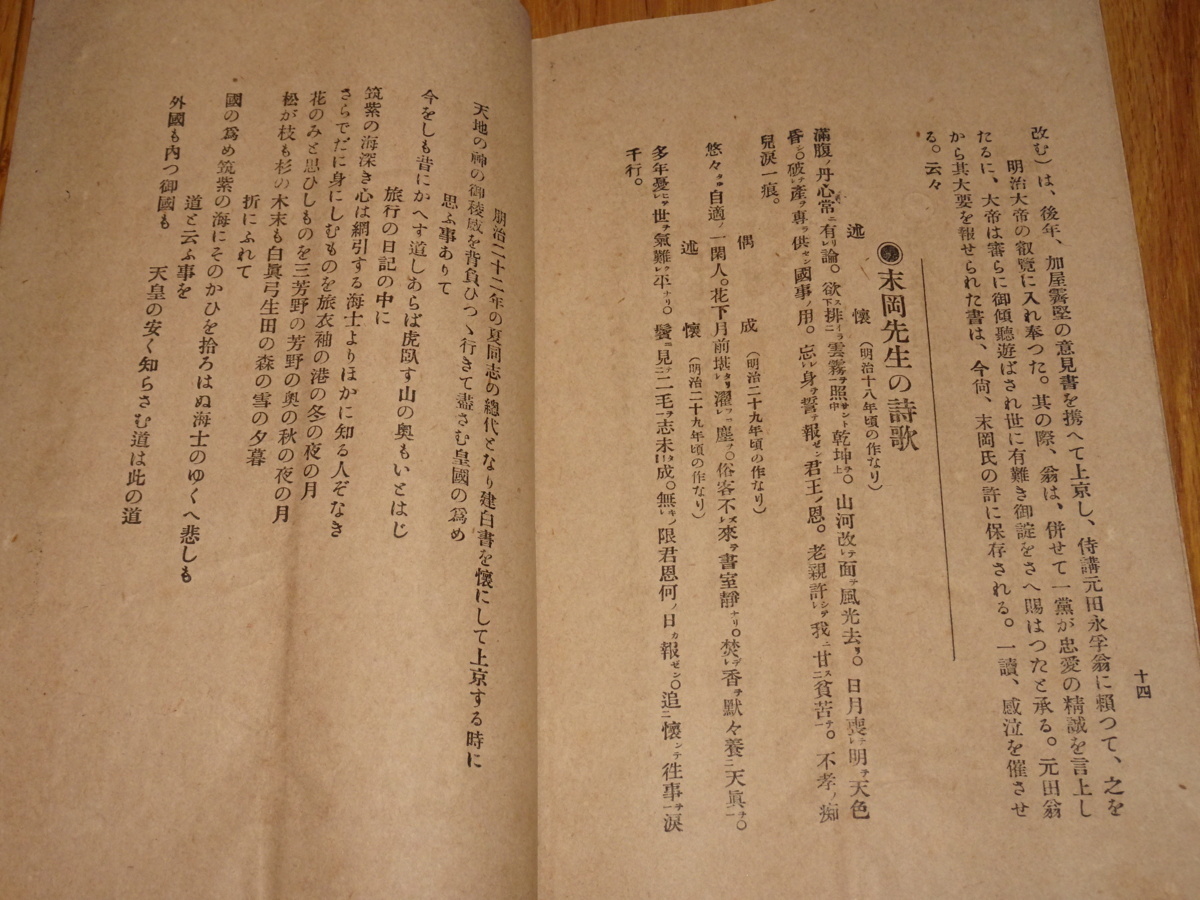 十四
改む）は、後年、加屋霽堅の意見書を携へて上京し、侍講元田永孚翁に頼つて、之を
明治大帝の叡覽に入れ奉つた。其の際、翁は、併せて一黨が忠愛の精誠を言上し
たるに、大帝は審らに御傾聽遊ばされ世に有難き御諚をさへ賜はつたと承る。元田翁
から其大要を報せられた書は、今尙、末岡氏の許に保存される。一讀、感泣を催させ
る。云々
末岡先生の詩歌
述懷（明治十八年頃の作なり）
滿腹ノ丹心常ニ有リレ論。欲ス下排イテ二雲霧ヲ一照サント中乾坤ヲ上。山河改メテレ面ヲ風光去リ。日月喪テレ明ヲ天色
昏シ。破テレ產ヲ專ラ供セン國事ノ用。忘レテレ身ヲ誓テ報ゼン君王ノ恩。老親許シテレ我ニ甘ス二貧苦ヲ一。不孝ノ痴
兒淚一痕。
偶成（明治二十九年頃の作なり）
悠々タル自適ノ一閑人。花下月前堪タリレ濯フニレ塵ヲ。俗客不レ來ラ書室靜ナリ。焚テレ香ヲ默々養フ二天眞ヲ一。
述懷（明治二十九年頃の作なり）
多年憂ヒテレ世ヲ氣難レ平ナリ。鬢ニ見テ二二毛ヲ一志未ダレ成。無キノレ限君恩何ノ日カ報ゼン。追二懷シテ往事ヲ一淚
千行。
明治二十二年の夏同志の總代となり建白書を懷にして上京する時に
天地の神の御稜威を背負ひつゝ行きて盡さむ皇國の爲め
思ふ事ありて
今をしも昔にかへす道しあらば虎臥す山の奧もいとはじ
旅行の日記の中に
筑紫の海深き心は綱引する海士よりほかに知る人ぞなき
さらでだに身にしむものを旅衣袖の港の冬の夜の月
花のみと思ひしものを三芳野の芳野の奧の秋の夜の月
松が枝も杉の木末も白眞弓生田の森の雪の夕暮
折にふれて
國の爲め筑紫の海にそのかひを拾ろはぬ海士のゆくへ悲しも
道と云ふ事を
外國も內つ御國も天皇の安く知らさむ道は此の道